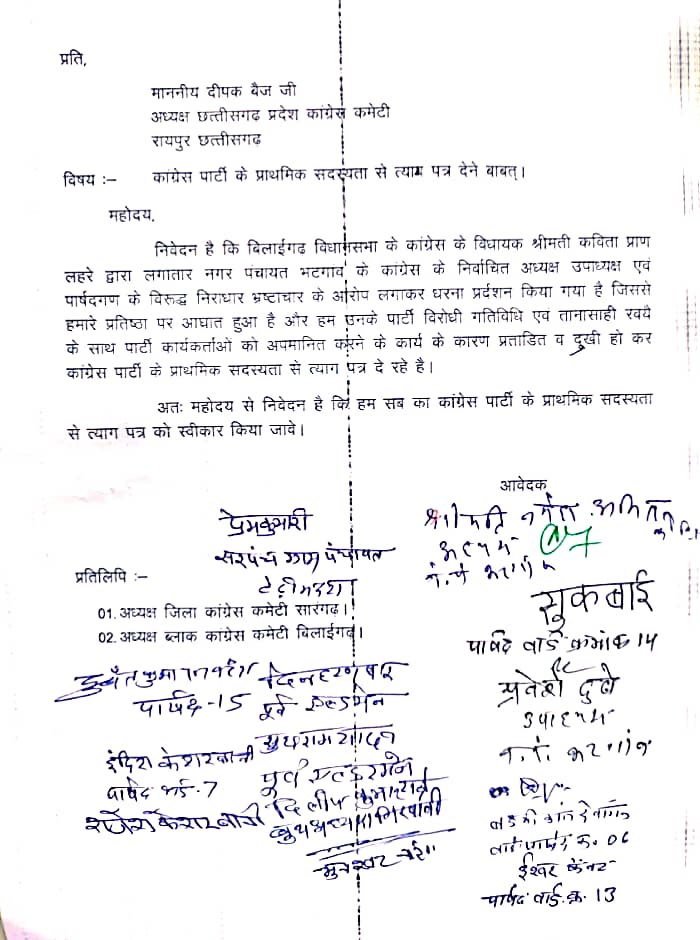 प्रति,
माननीय दीपक बैज जी
अध्यक्ष छत्तीसगढ़ प्रदेश कांग्रेस कमेटी
रायपुर छत्तीसगढ़
विषय :– कांग्रेस पार्टी के प्राथमिक सदस्यता से त्याग पत्र देने बाबत्।
महोदय,
निवेदन है कि बिलाईगढ विधानसभा के कांग्रेस के विधायक श्रीमती कविता प्राण
लहरे द्वारा लगातार नगर पंचायत भटगांव के कांग्रेस के निर्वाचित अध्यक्ष उपाध्यक्ष एवं
पार्षदगण के विरुद्ध निराधार भ्रष्टाचार के आरोप लगाकर धरना प्रर्दशन किया गया है जिससे
हमारे प्रतिष्ठा पर आघात हुआ है और हम उनके पार्टी विरोधी गतिविधि एवं तानासाही रवयै
के साथ पार्टी कार्यकर्ताओं को अपमानित करने के कार्य के कारण प्रताडित व दुखी हो कर
कांग्रेस पार्टी के प्राथमिक सदस्यता से त्याग पत्र दे रहे है।
अतः महोदय से निवेदन है कि हम सब का कांग्रेस पार्टी के प्राथमिक सदस्यता
से त्याग पत्र को स्वीकार किया जावे।
आवेदक
प्रेमकुमारी
सरपंच ग्राम पंचायत
प्रतिलिपि :–
01. अध्यक्ष जिला कांग्रेस कमेटी सारंगढ़।
02. अध्यक्ष ब्लाक कांग्रेस कमेटी बिलाईगढ़।
सुकबाई
पार्षद वार्ड क्रमांक 14
पार्षद-15
पूर्व एल्डरमेन
प्रवेश दुबे
उपाध्यक्ष
न. पं. भटगांव
इंदिरा केशरवानी
पार्षद वार्ड-7
पूर्व एल्डरमेन
दिलीप
क्र. 06
ईश्वर
पार्षद वार्ड क्र. 13